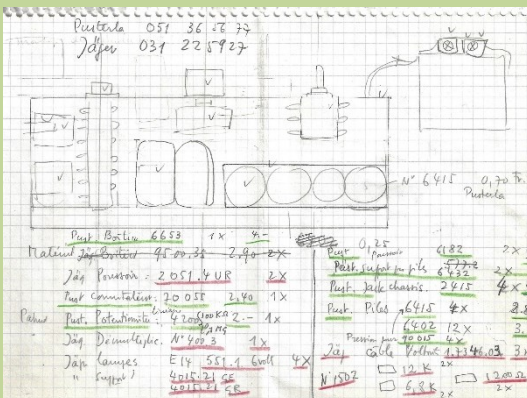 Pusterla 051 36 56 77
Jäger 031 225927
N° 6415 0,70 Fr.
Pusterla
Pust. Boîtier 6653 1x 4.-
95.00.35 2,90 2x
Jäg Poussoir: 2051.4 UR 2x
Pust Commutateur: 70055 2,40 1x
Pust. Potentiomètre 4200 100KΩ 2.- 1x
Jäg. Démultiplic. N° 4003 1x
Jäg lampes E14 551.1 6volt 4x
" support 4015.21 CE
4015.21 CR
Pust 0,25 6182 2x
Pust. support pr piles 6432 2x
Pust. Jack chassis. 2415
Pust. Piles 6415 4x
6402 12x
Pression pour 90015 4x
Jäg câble Voltmè 1.7346.03
N° 1502 12 K 2x 1200Ω 2x
6,8 K 2x